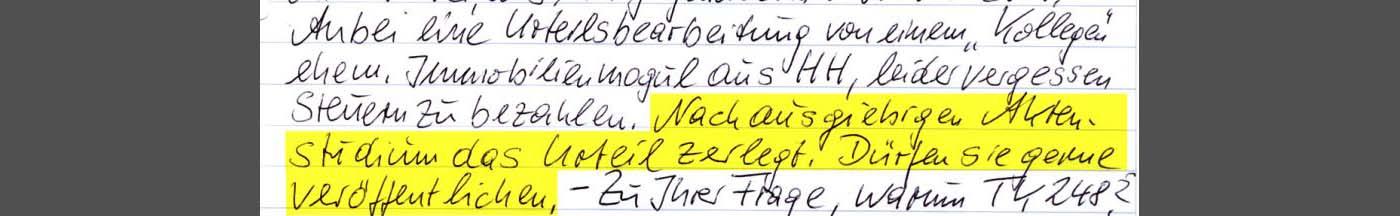 Anbei eine Urteilsbearbeitung von einem „Kollegen“
ehem. Immobilienmogul aus HH, leider vergessen
Steuern zu bezahlen. Nach ausgiebigen Akten-
studium das Urteil zerlegt. Dürfen sie gerne
veröffentlichen. – Zu Ihrer Frage, warum 248?